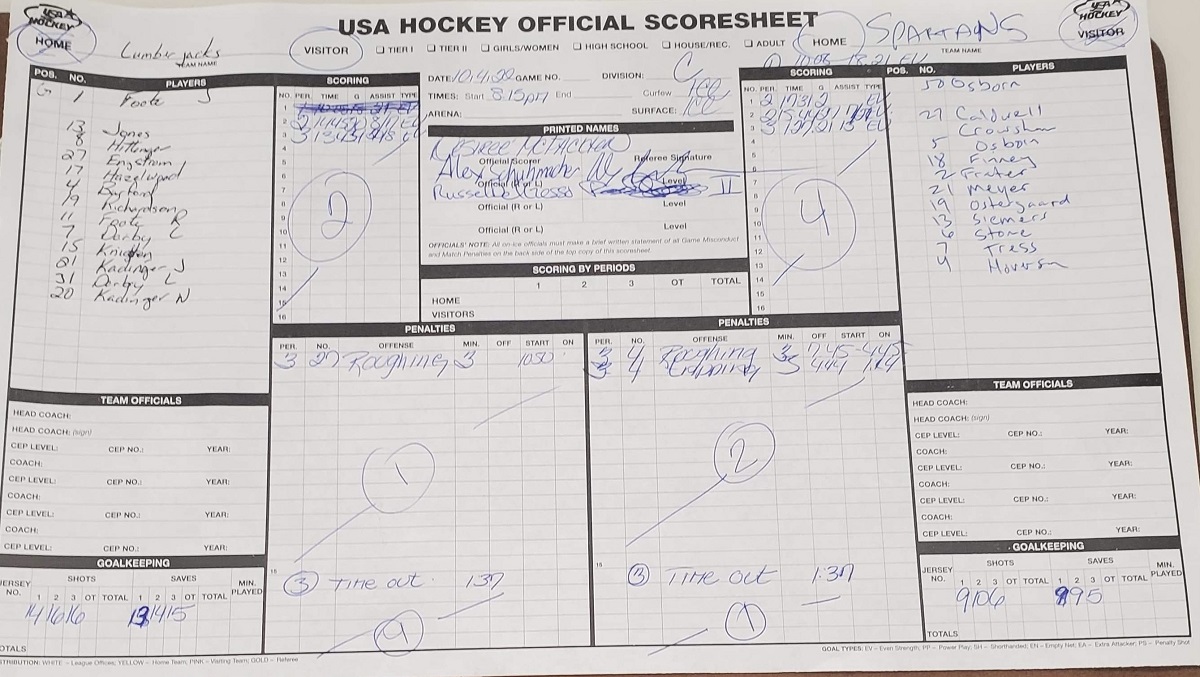 USA HOCKEY OFFICIAL SCORESHEET
USA HOCKEY
HOME
Lumberjacks
TEAM NAME
VISITOR
☐ TIER I ☐ TIER II ☐ GIRLS/WOMEN ☐ HIGH SCHOOL ☐ HOUSE/REC. ☐ ADULT
HOME
SPARTANS
TEAM NAME
USA HOCKEY
VISITOR
POS. NO. PLAYERS
G 1 Foote J
13 Jones
8 Hittenger
27 Engstrom
17 Hazelwood
4 Burford
19 Richardson
11 Foote R
7 Dorby C
15 Knighten
21 Kadinger J
31 Dorby L
20 Kadinger N
SCORING
NO. PER. TIME G ASSIST TYPE
1
2
3
4
5
6
7
8
9
10
11
12
13
14
15
16
2
DATE: 10.4.22 GAME NO. DIVISION: C
TIMES: Start 8:15pm End Curfew
ARENA: SURFACE: Ice
PRINTED NAMES
Official Scorer Referee Signature
Alex
Official (R or L) Level
II
Official (R or L) Level
Official (R or L) Level
OFFICIALS' NOTE: All on-ice officials must make a brief written statement of all Game Misconduct
and Match Penalties on the back side of the top copy of this scoresheet.
SCORING BY PERIODS
1 2 3 OT TOTAL
HOME
VISITORS
SCORING
NO. PER. TIME G ASSIST TYPE
1 2 1731 2 EV
2
3
4
5
6
7
8
9
10
11
12
13
14
15
16
4
POS. NO. PLAYERS
50 Osborn
27 Caldwell
Crowshaw
5 Osborn
18 Finney
2 Frater
21 Meyer
19 Ostergaard
13 Siemers
6 Stone
7 Tress
4 Hoverson
PENALTIES
PER. NO. OFFENSE MIN. OFF START ON
3 27 Roughing 3 1050
1
15
③ Time out 1:37
PENALTIES
PER. NO. OFFENSE MIN. OFF START ON
3 4 Roughing 3 7:45 4:45
3 4 Tripping 3 444 1:44
2
15
③ Time out 1:37
1
TEAM OFFICIALS
HEAD COACH:
HEAD COACH: (sign)
CEP LEVEL: CEP NO.: YEAR:
COACH:
CEP LEVEL: CEP NO.: YEAR:
COACH:
CEP LEVEL: CEP NO.: YEAR:
COACH:
CEP LEVEL: CEP NO.: YEAR:
GOALKEEPING
JERSEY NO. SHOTS SAVES MIN. PLAYED
1 2 3 OT TOTAL 1 2 3 OT TOTAL
14 16 16 13 14 15
TOTALS
TEAM OFFICIALS
HEAD COACH:
HEAD COACH: (sign)
CEP LEVEL: CEP NO.: YEAR:
COACH:
CEP LEVEL: CEP NO.: YEAR:
COACH:
CEP LEVEL: CEP NO.: YEAR:
COACH:
CEP LEVEL: CEP NO.: YEAR:
GOALKEEPING
JERSEY NO. SHOTS SAVES MIN. PLAYED
1 2 3 OT TOTAL 1 2 3 OT TOTAL
9 10 6 9 9 5
TOTALS
DISTRIBUTION: WHITE – League Offices; YELLOW – Home Team; PINK – Visiting Team; GOLD – Referee
GOAL TYPES: EV – Even Strength; PP – Power Play; SH – Shorthanded; EN – Empty Net; EA – Extra Attacker; PS – Penalty Shot